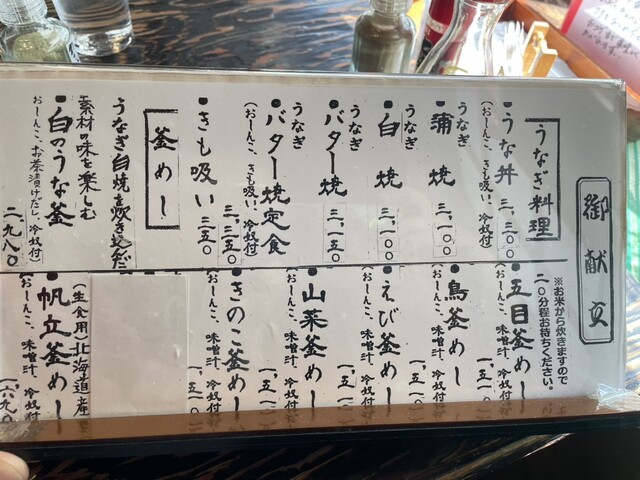 御献立
うなぎ料理
・うな丼 三、一〇〇
(おしんこ、きも吸い、冷奴付)
うなぎ
・蒲焼 三、一〇〇
うなぎ
・白焼 三、一〇〇
うなぎ
・バター焼 三、一五〇
うなぎ
・バター焼定食
(おしんこ、きも吸い、冷奴付)
三、三五〇
・きも吸い 三五〇
釜めし
うなぎ白焼を炊き込んだ
素材の味を楽しむ
・白のうな釜
おしんこ、お茶漬けだし、冷奴付
二、九八〇
※お米から炊きますので
二〇分程お待ちください。
・五目釜めし
(おしんこ、味噌汁、冷奴付
一、五一
・鳥釜めし
(おしんこ、味噌汁、冷奴付
一、五一〇
・えび釜めし
(おしんこ、味噌汁、冷奴付
一、五一
・山菜釜めし
(おしんこ、味噌汁、冷奴付
一、五一
・きのこ釜めし
(おしんこ、味噌汁、冷奴付
一、五一〇
(生食用)北海道産
・帆立釜めし
(おしんこ、味噌汁、冷奴付
一、六九〇